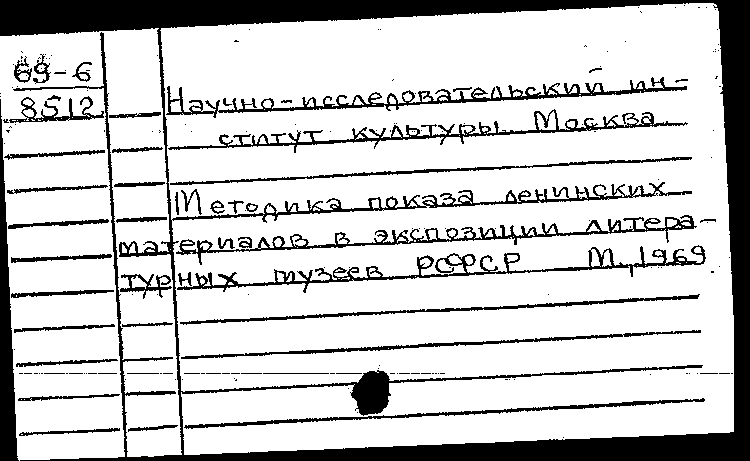 69-6
8512
Научно-исследовательский ин-
ститут культуры. Москва.
Методика показа ленинских
материалов в экспозиции литера-
турных музеев РСФСР М., 1969